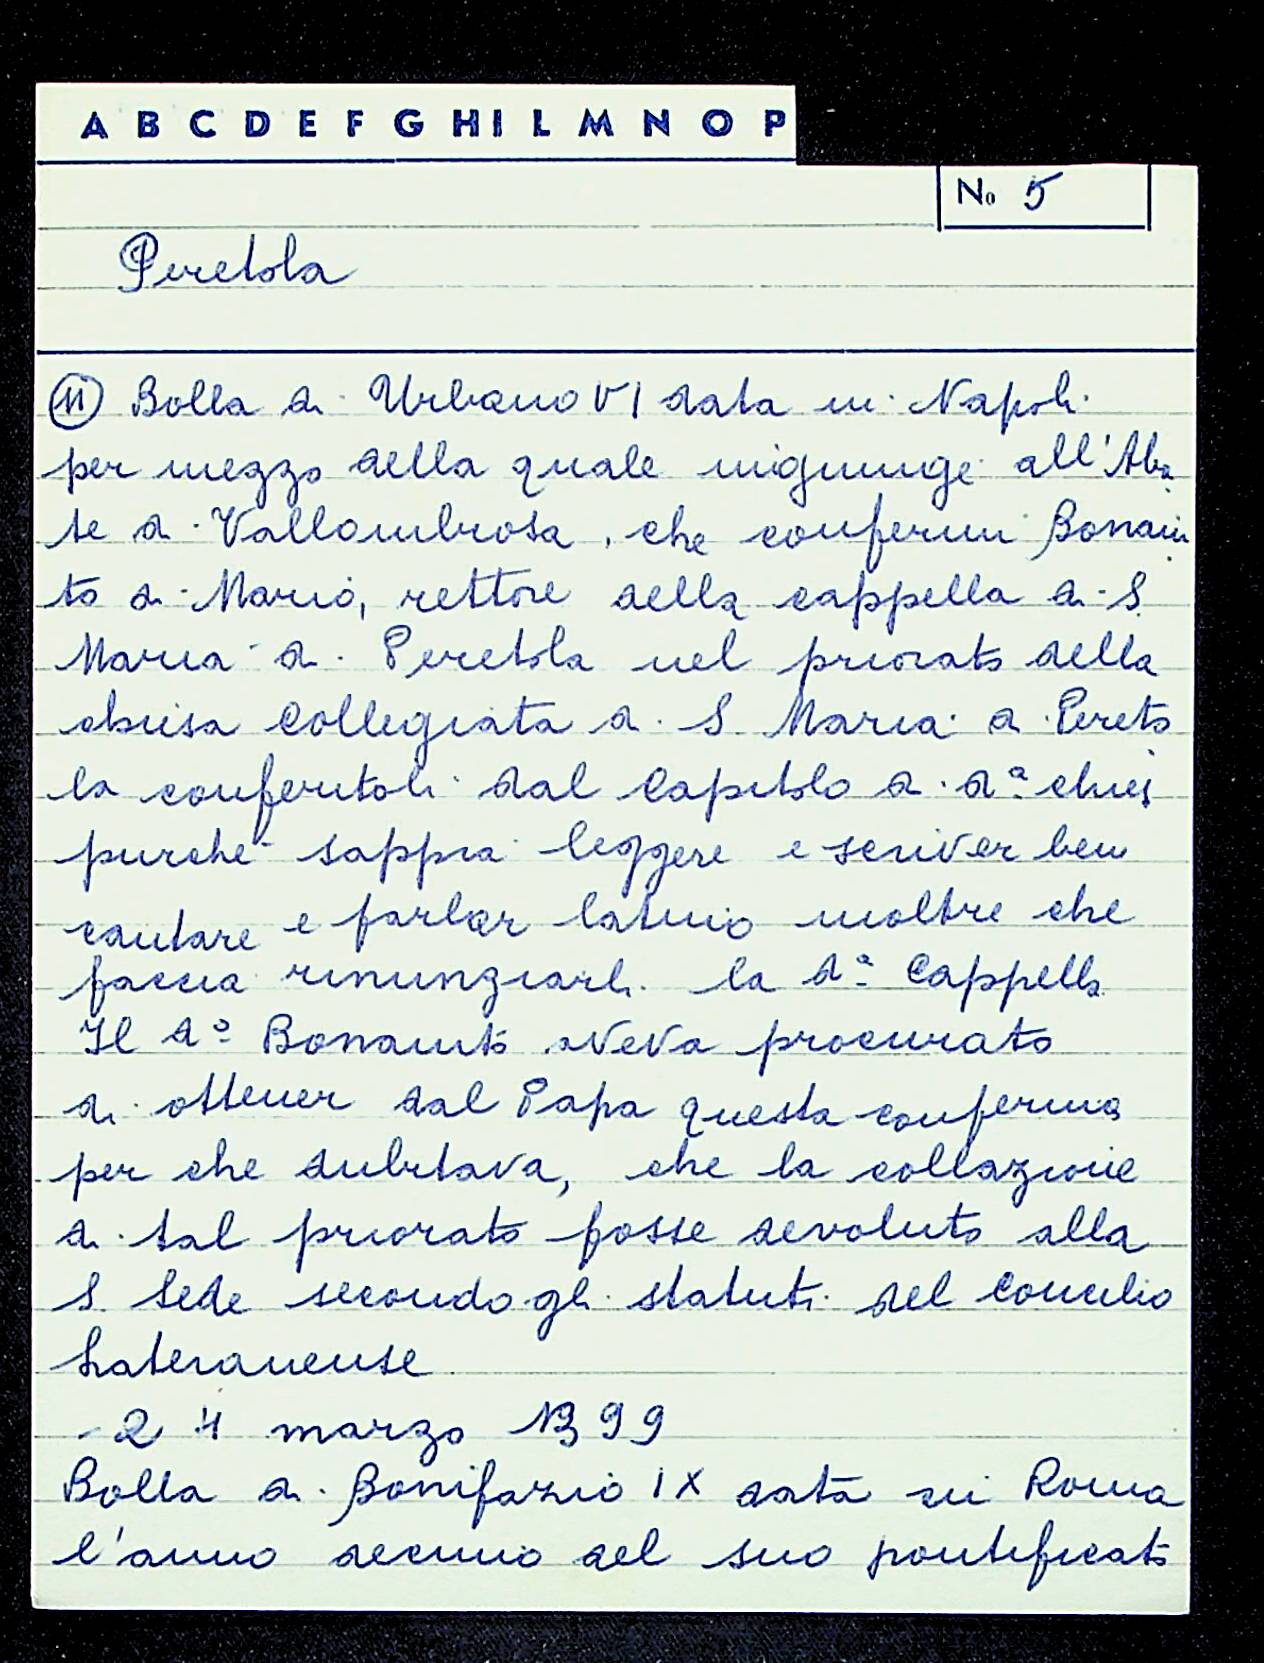 A B C D E F G H I L M N O P
No 5
Peretola
11 Bolla di Urbano VI data in Napoli
per mezzo della quale ingiunge all'Aba
te di Vallombrosa, che confermi Bonaiu
to di Mario, rettore della cappella di S
Maria di Peretola nel priorato della
chiesa Collegiata di S. Maria a Pereto
la conferitoli dal Capitolo di da chies
purchè sappia leggere e scriver ben
cantare e parlar latino inoltre che
faccia rinunziarli la da Cappella
Il do Bonaiuto aveva procurato
di ottener dal Papa questa conferma
per che dubitava, che la collazione
di tal priorato fosse devoluto alla
S. Sede secondo gli statuti del Concilio
Lateranense
- 24 marzo 1399
Bolla di Bonifazio IX data in Roma
l'anno decimo del suo pontificato